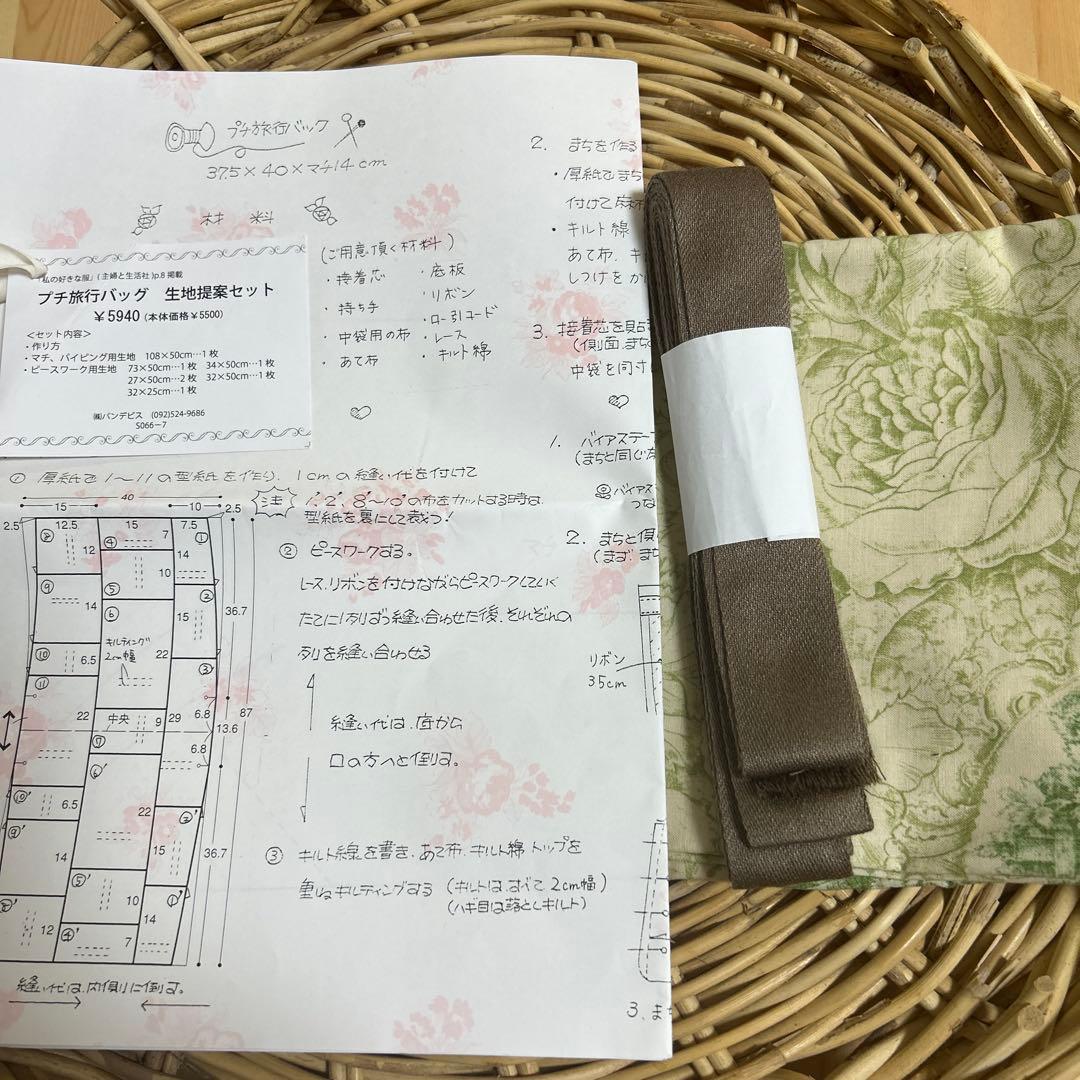 プチ旅行バック
37.5×40×マチ14cm
材 料
「私の好きな服」(主婦と生活社)p.8 掲載
プチ旅行バッグ 生地提案セット
¥5940(本体価格¥5500)
<セット内容>
・作り方
・マチ、パイピング用生地 108×50cm…1枚
・ピースワーク用生地 73×50cm…1枚 34×50cm…1枚
27×50cm…2枚 32×50cm…1枚
32×25cm…1枚
㈱パンデビス (092)524-9686
S066-7
(ご用意頂く材料)
・接着芯
・持ち手
・中袋用の布
・あて布
・底板
・リボン
・ロー引コード
・レース
・キルト綿
① 厚紙で1〜11の型紙を作り、1cmの縫い代を付けて
注 1',2',8'〜10'の布をカットする時は、
型紙を裏にして裁つ!
40
15 10
2.5 12.5 15 7.5 2.5
⑧ 12 ④ 7 ① 14
⑨ 14 ⑤ 10 ② 15
⑥ 36.7
キルティング
2cm幅
⑩ 6.5 22 ③
⑪ 22 中央 9 29 6.8 87
⑦ 13.6
6.8
⑥'
⑩' 6.5 22 ②'
⑨' 14 15 36.7
⑤' 10 ①'
⑧' 12 14
④' 7
縫い代は、内側に倒す。
② ピースワークする。
レース、リボンを付けながらピスワークしていく
たてに1列ずつ縫い合わせた後、それぞれの
列を縫い合わせる
縫い代は、底から
口の方へと倒す。
③ キルト線を書き、あて布、キルト綿、トップを
重ねキルティングする (キルトは、すべて 2cm幅)
(ハギ目は落としキルト)
2. まちを作る
・厚紙でまち
付けて
・キルト線
あて布、キ
しつけをか
3. 接着芯を貼
(側面、まち
中袋を同寸
1. バイアステー
(まちと同じ
バイアス
つな
2. まちと側
(まず、まち
リボン
35cm
3、ま